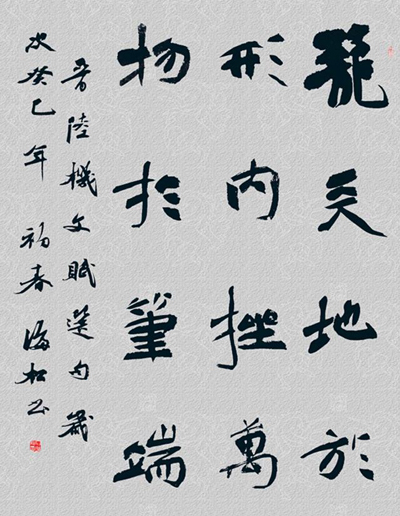 籠天地於
形内挫萬
物於筆端
晉陸機文賦選句歲
次癸巳年初春海松书